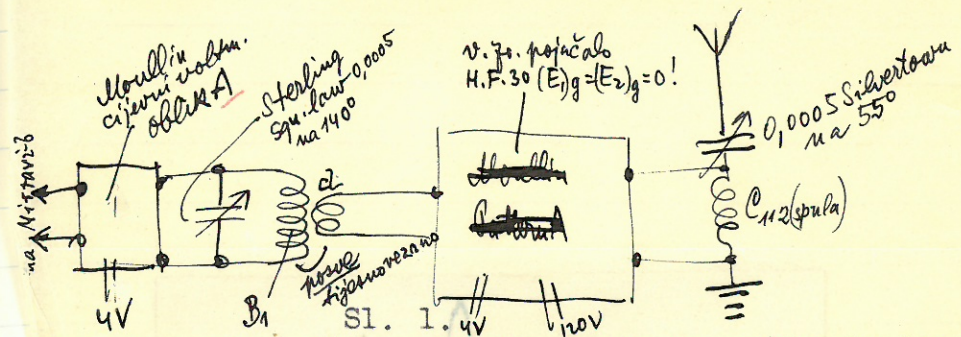 Moullin
cijevni voltm.
oblik A
na Mi
4V
Sterling
squ. law 0,0005
na 140°
B₁
d
posve
tijesno vezano
v. fr. pojačalo
H.F. 30 (E₁)g = (E₂)g = 0!
Moullin
4V
120V
0,0005 Silvertown
na 55°
C₁₁₂ (spula)
Sl. 1.